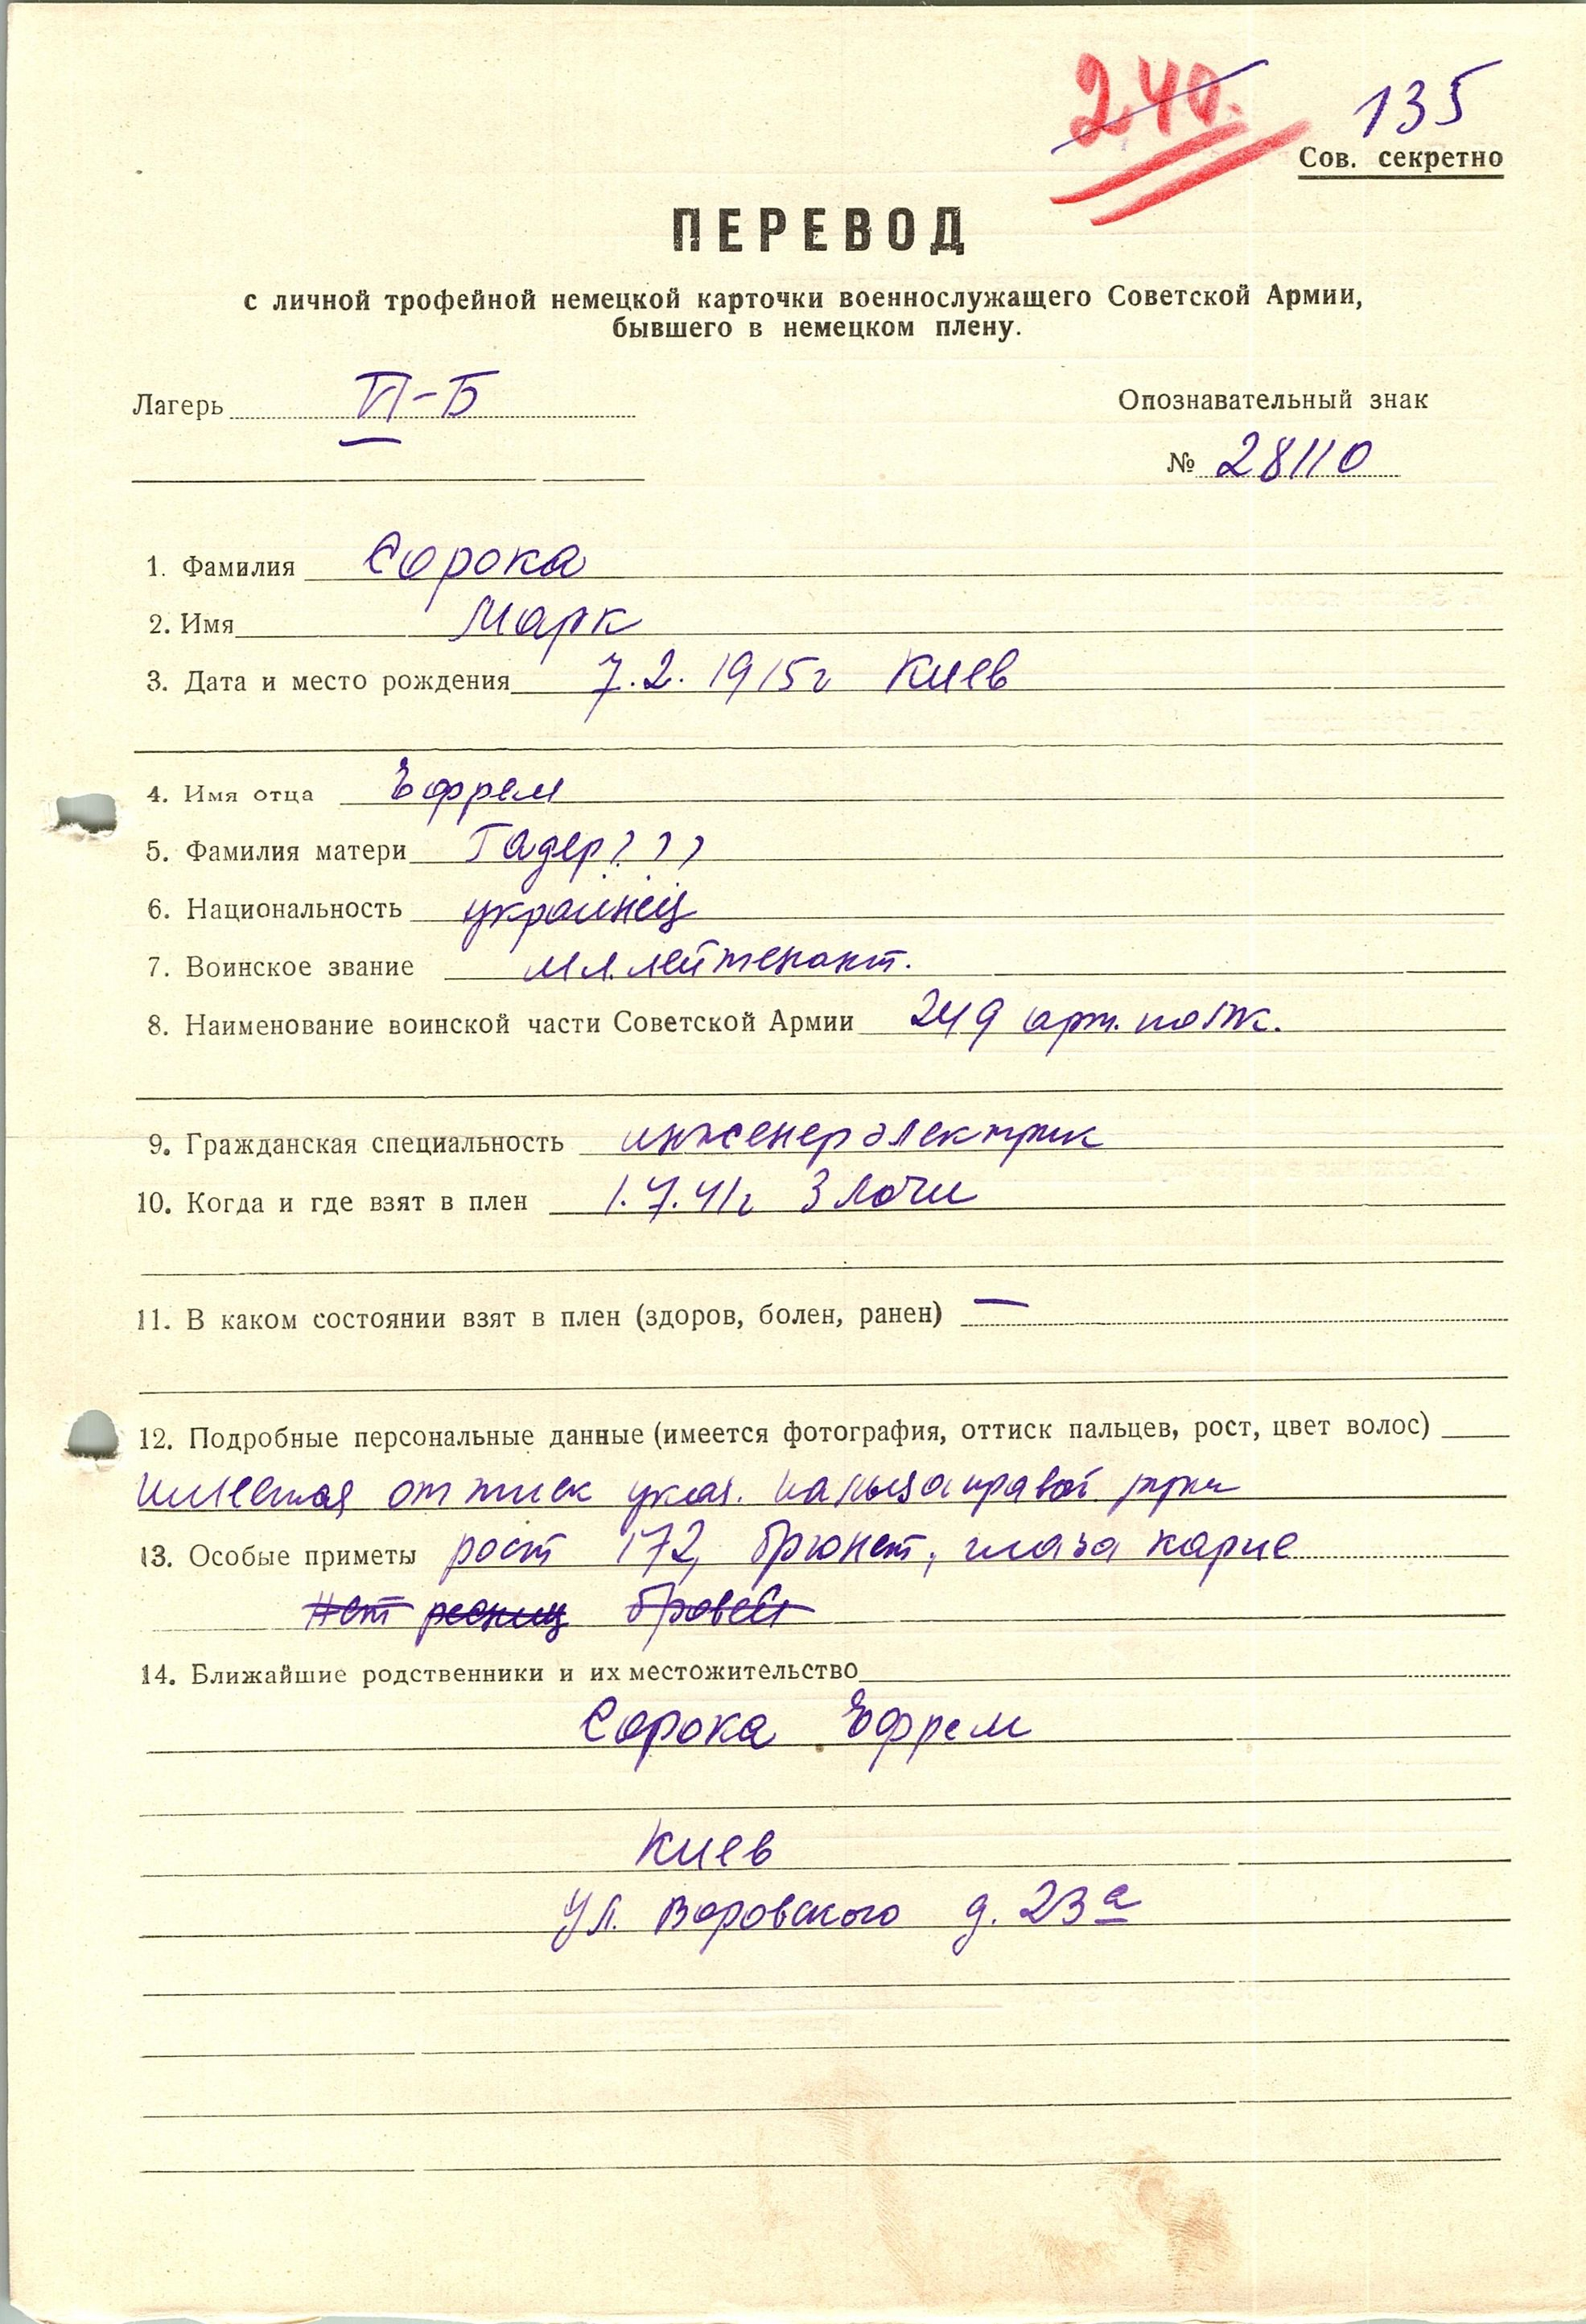 240.
135
Сов. секретно
ПЕРЕВОД
с личной трофейной немецкой карточки военнослужащего Советской Армии,
бывшего в немецком плену.
Лагерь VI-Б
Опознавательный знак
№ 28110
1. Фамилия Сорока
2. Имя Марк
3. Дата и место рождения 7.2.1915г Киев
4. Имя отца Ефрем
5. Фамилия матери Гадер???
6. Национальность украинец
7. Воинское звание мл. лейтенант.
8. Наименование воинской части Советской Армии 249 арт. полк.
9. Гражданская специальность инженер электрик
10. Когда и где взят в плен 1.7.41г Злочи
11. В каком состоянии взят в плен (здоров, болен, ранен) —
12. Подробные персональные данные (имеется фотография, оттиск пальцев, рост, цвет волос)
имеется оттиск указ. пальца правой руки
13. Особые приметы рост 172, брюнет, глаза карие
нет ресниц бровей
14. Ближайшие родственники и их местожительство
Сорока Ефрем
Киев
ул. Воровского д. 23а